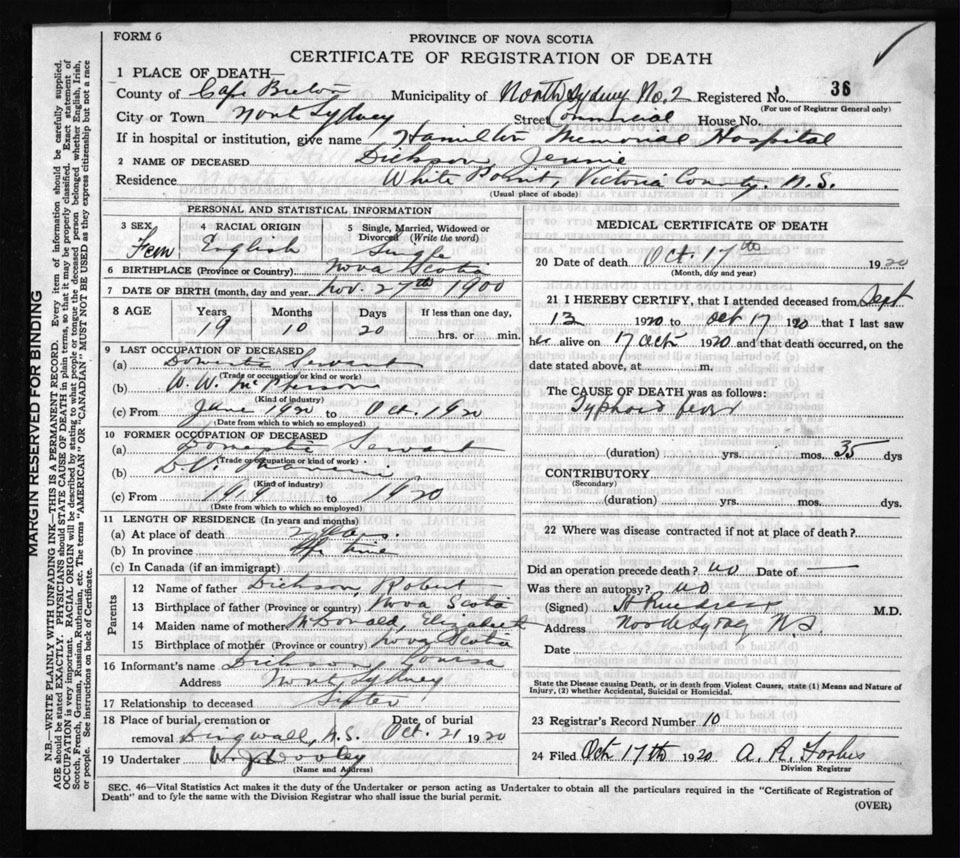 FORM 6
PROVINCE OF NOVA SCOTIA
CERTIFICATE OF REGISTRATION OF DEATH
1 PLACE OF DEATH—
County of Cape Breton Municipality of North Sydney No. 2 Registered No. 36
(For use of Registrar General only)
City or Town North Sydney Street Commercial House No.
If in hospital or institution, give name Hamilton Memorial Hospital
2 NAME OF DECEASED Dickson, Jennie
Residence White Point, Victoria County. N.S.
(Usual place of abode)
PERSONAL AND STATISTICAL INFORMATION
3 SEX 4 RACIAL ORIGIN 5 Single, Married, Widowed or Divorced (Write the word)
Fem English Single
6 BIRTHPLACE (Province or Country) Nova Scotia
7 DATE OF BIRTH (month, day and year) Nov. 27th 1900
8 AGE Years Months Days If less than one day,
19 10 20 hrs. or min.
9 LAST OCCUPATION OF DECEASED
(a) Domestic Servant
(Trade or occupation or kind of work)
(b) W. W. McPherson
(Kind of industry)
(c) From June 1920 to Oct. 1920
(Date from which to which so employed)
10 FORMER OCCUPATION OF DECEASED
(a) Domestic Servant
(Trade or occupation or kind of work)
(b)
(Kind of industry)
(c) From 1919 to 1920
(Date from which to which so employed)
11 LENGTH OF RESIDENCE (In years and months)
(a) At place of death
(b) In province life time
(c) In Canada (if an immigrant)
Parents
12 Name of father Dickson, Robert
13 Birthplace of father (Province or country) Nova Scotia
14 Maiden name of mother McDonald, Elizabeth
15 Birthplace of mother (Province or country) Nova Scotia
16 Informant's name Dickson, Louisa
Address North Sydney
17 Relationship to deceased Sister
18 Place of burial, cremation or removal Dingwall, N.S. Date of burial Oct. 21 1920
19 Undertaker W. J. Dooley
(Name and Address)
MEDICAL CERTIFICATE OF DEATH
20 Date of death Oct. 17th 1920
(Month, day and year)
21 I HEREBY CERTIFY, that I attended deceased from Sept
13 1920 to Oct 17 1920 that I last saw
her alive on 17 Oct 1920 and that death occurred, on
date stated above, at m.
The CAUSE OF DEATH was as follows:
Typhoid fever
(duration) yrs. mos. 35 dys
CONTRIBUTORY
(Secondary)
(duration) yrs. mos. dys.
22 Where was disease contracted if not at place of death?
Did an operation precede death? no Date of —
Was there an autopsy? no
(Signed) M.D.
Address North Sydney N.S.
Date
State the Disease causing Death, or in death from Violent Causes, state (1) Means and Nature of
Injury, (2) whether Accidental, Suicidal or Homicidal.
23 Registrar's Record Number 10
24 Filed Oct 17th 1920 A. R. Forbes
Division Registrar
SEC. 46—Vital Statistics Act makes it the duty of the Undertaker or person acting as Undertaker to obtain all the particulars required in the "Certificate of Registration of
Death" and to fyle the same with the Division Registrar who shall issue the burial permit.
(OVER)
MARGIN RESERVED FOR BINDING
N.B.—WRITE PLAINLY WITH UNFADING INK—THIS IS A PERMANENT RECORD. Every item of information should be carefully supplied.
AGE should be stated EXACTLY. PHYSICIANS should STATE CAUSE OF DEATH in plain terms, so that it may be properly classified. Exact statement of
OCCUPATION is very important. RACIAL ORIGIN will be described by stating to what people or tongue the deceased person belonged whether English, Irish,
Scotch, French, German, Russian, Ruthenian, etc. The terms "AMERICAN" or "CANADIAN" MUST NOT BE USED as they express citizenship but not a race
or people. See instructions on back of Certificate.